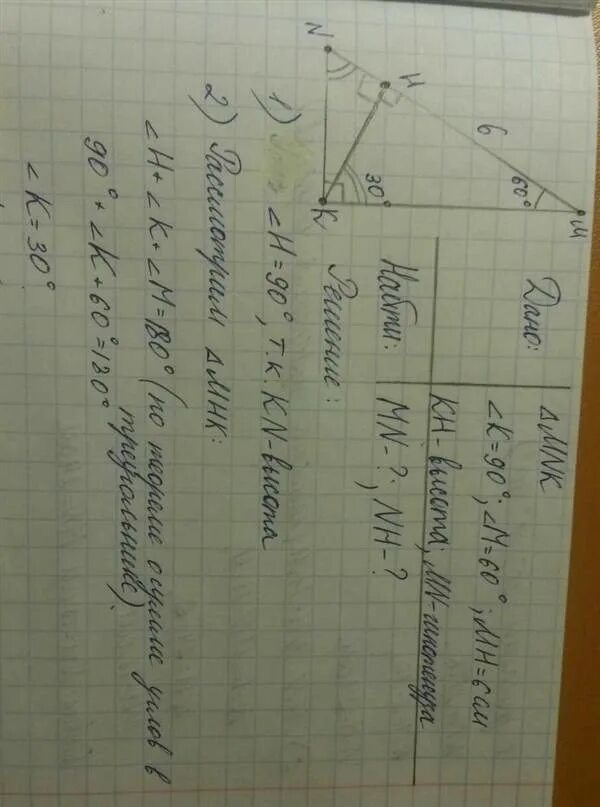 N
H
6
60°
M
30°
K
Дано:
△MNK
∠K=90°; ∠M=60°; MH=6 см
KH-высота; MN-гипотенуза
Найти:
MN-?; NH-?
Решение:
1) ∠H=90°, т.к. KN-высота
2) Рассмотрим △MHK:
∠H+∠K+∠M=180° (по теореме о сумме углов в
треугольнике)
90°+∠K+60°=180°
∠K=30°